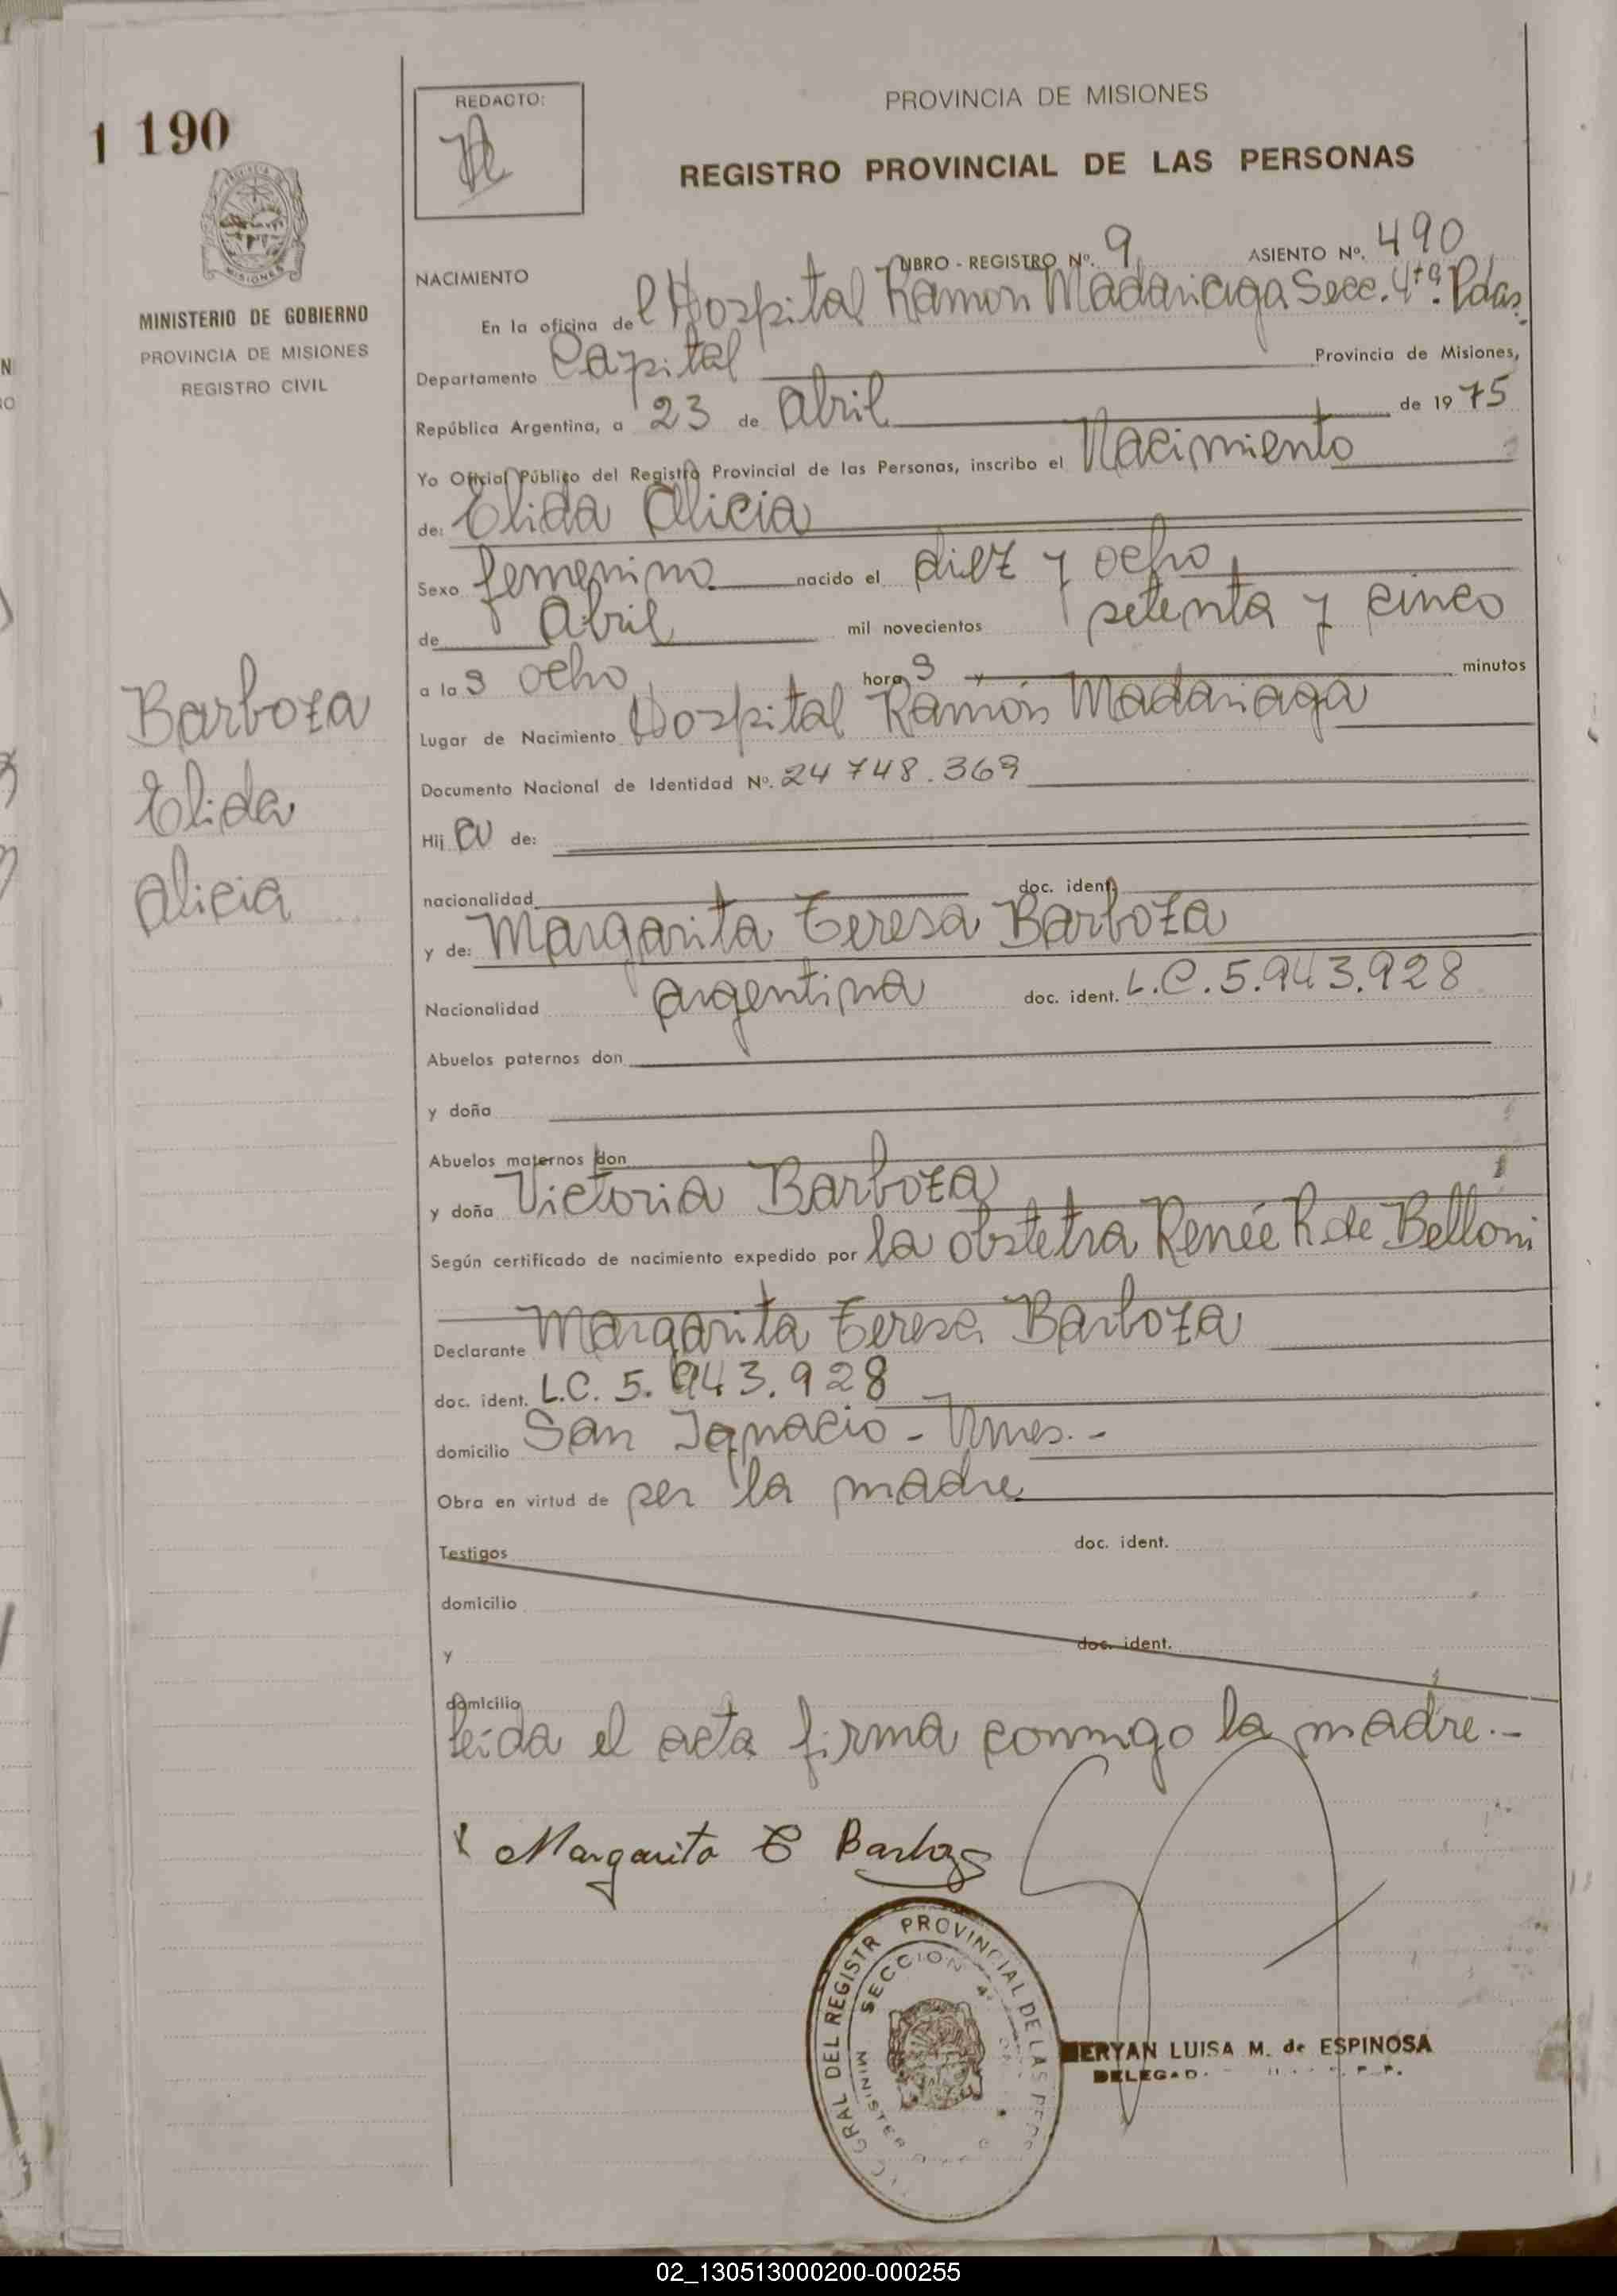 1 190
REDACTO:
PROVINCIA DE MISIONES
REGISTRO PROVINCIAL DE LAS PERSONAS
MISIONES
MINISTERIO DE GOBIERNO
PROVINCIA DE MISIONES
REGISTRO CIVIL
NACIMIENTO LIBRO - REGISTRO Nº. 9 ASIENTO Nº. 490
En la oficina de l Hospital Ramón Madariaga Secc. 4ta. Pdas.
Departamento Capital Provincia de Misiones,
República Argentina, a 23 de Abril de 19 75
Yo Oficial Público del Registro Provincial de las Personas, inscribo el Nacimiento
de: Elida Alicia
Sexo femenino nacido el diez y ocho
de Abril mil novecientos setenta y cinco
a la s ocho hora s y minutos
Lugar de Nacimiento Hospital Ramón Madariaga
Documento Nacional de Identidad Nº. 24 748.369
Hij a de:
nacionalidad doc. ident.
y de: Margarita Teresa Barboza
Nacionalidad argentina doc. ident. L.C. 5.943.928
Abuelos paternos don
y doña
Abuelos maternos don
y doña Victoria Barboza
Según certificado de nacimiento expedido por la obstetra Renée R de Belloni
Declarante Margarita Teresa Barboza
doc. ident. L.C. 5.943.928
domicilio San Ignacio -
Obra en virtud de ser la madre
Testigos doc. ident.
domicilio
y doc. ident.
domicilio
leída el acta firma conmigo la madre.-
x Margarita T Barboza
Barboza
Elida
Alicia
GRAL DEL REGISTR PROVINCIAL DE LAS PERS
SECCION 4ª
MINISTER
ERYAN LUISA M. de ESPINOSA
02_130513000200-000255